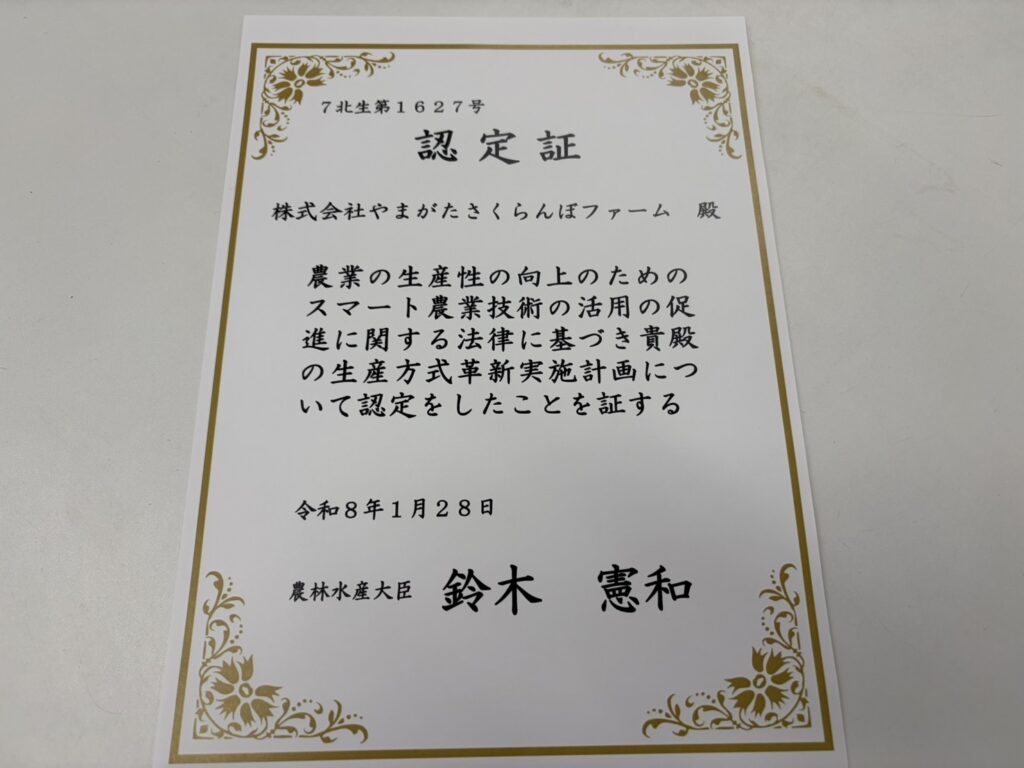 ７北生第１６２７号
認定証
株式会社やまがたさくらんぼファーム　殿
農業の生産性の向上のための
スマート農業技術の活用の促
進に関する法律に基づき貴殿
の生産方式革新実施計画につ
いて認定をしたことを証する
令和８年１月２８日
農林水産大臣　鈴木　憲和